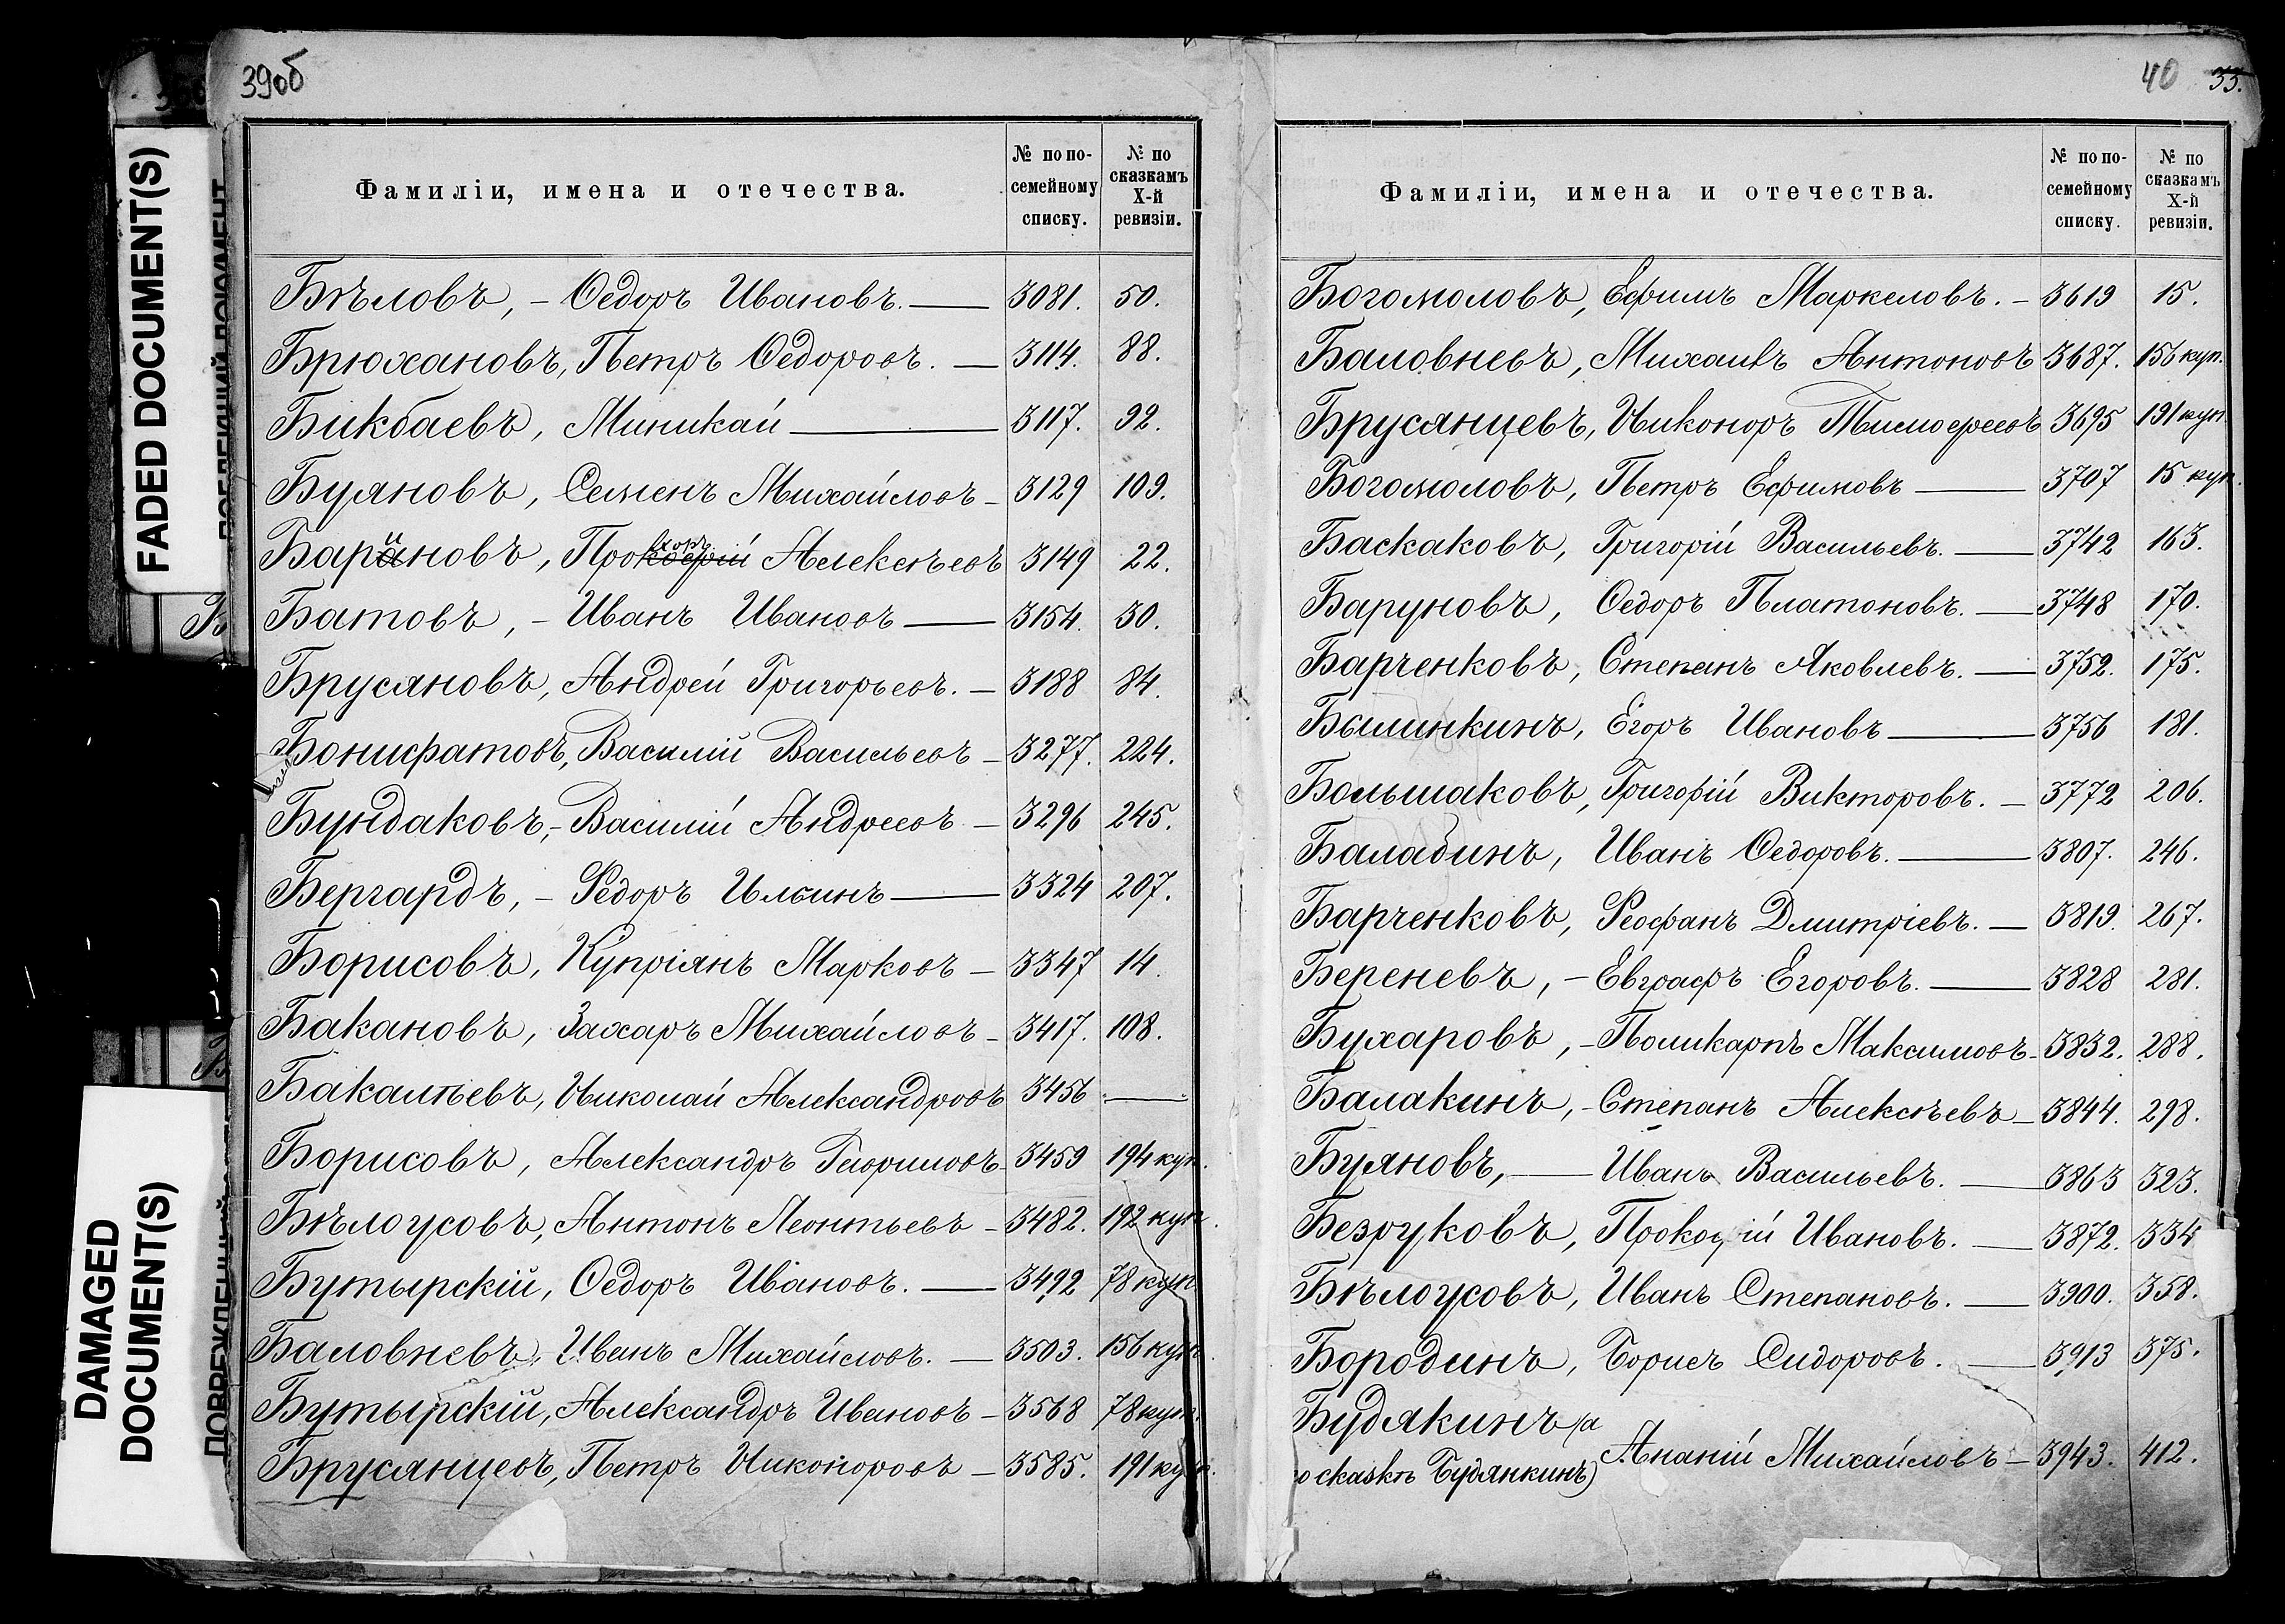 39об
Фамиліи, имена и отечества.
№ по по-семейному списку.
№ по сказкамъ X-й ревизіи.
Бѣловъ, – Ѳедоръ Ивановъ. — 3081. 50.
Брюхановъ, Петръ Ѳедоровъ. — 3114. 88.
Бикбаевъ, Миникай — 3117. 92.
Буяновъ, Семенъ Михайловъ – 3129 109.
Bариновъ, Прохоръ Алексѣевъ 3149 22.
Батовъ, – Иванъ Ивановъ — 3154. 30.
Брусяновъ, Андрей Григорьевъ. – 3188 84.
Бонифатовъ, Василій Васильевъ – 3277. 224.
Бундаковъ, – Василій Андреевъ – 3296 245.
Бергардъ, – Федоръ Ильинъ — 3324 207.
Борисовъ, Купріянъ Марковъ – 3347 14.
Бакановъ, Захаръ Михайловъ – 3417. 108.
Бакалѣевъ, Николай Александровъ 3456 —
Борисовъ, Александръ Гавриловъ 3459 194 куп.
Бѣлоусовъ, Антонъ Леонтьевъ – 3482. 192 куп.
Бутырскій, Ѳедоръ Ивановъ. — 3492 78 куп
Баловневъ, Иванъ Михайловъ. – 3503. 156 куп.
Бутырскій, Александръ Ивановъ – 3568 78 куп.
Брусянцевъ, Петръ Никоноровъ – 3585. 191 куп.
40 33.
Фамиліи, имена и отечества.
№ по по-семейному списку.
№ по сказкамъ X-й ревизіи.
Богомоловъ, Ефимъ Маркеловъ. – 3619 15.
Баловневъ, Михаилъ Антоновъ 3687. 156 куп.
Брусянцевъ, Никоноръ Тимофеевъ 3695 191 куп.
Богомоловъ, Петръ Ефимовъ — 3707 15 куп.
Баскаковъ, Григорій Васильевъ. — 3742 163.
Баруновъ, Ѳедоръ Платоновъ. — 3748 170.
Барченковъ, Степанъ Яковлевъ. — 3752. 175.
Былинкинъ, Егоръ Ивановъ — 3756 181.
Большаковъ, Григорій Викторовъ. – 3772 206.
Баладинъ, Иванъ Ѳедоровъ. — 3807. 246.
Барченковъ, Феофанъ Дмитріевъ. – 3819. 267.
Береневъ, – Евграфъ Егоровъ. — 3828 281.
Бухаровъ, – Поликарпъ Максимовъ – 3832. 288.
Балакинъ, – Степанъ Алексѣевъ – 3844. 298.
Буяновъ, — Иванъ Васильевъ. — 3863 323.
Безруковъ, Прокофій Ивановъ. — 3872. 334
Бѣлоусовъ, Иванъ Степановъ. — 3900. 358.
Бородинъ, Борисъ Сидоровъ. — 3913 375.
Будякинъ (а
о сказкѣ Будянкинъ) Ананій Михайловъ – 3943. 412.
FADED DOCUMENT(S)
DAMAGED
DOCUMENT(S)